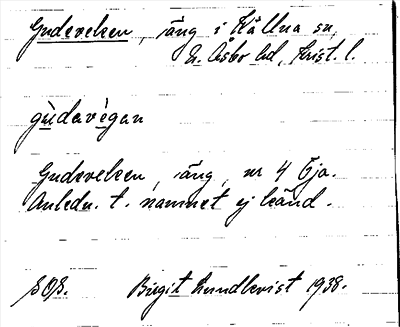 Gudevelsen, äng i Källna sn,
N. Åsbo hd, Krist. l.
gùdavègan
Gudevelsen, äng, nr 4 Tja.
Anledn. t. namnet ej känd.
SOÄ. Birgit Lundkvist 1938.